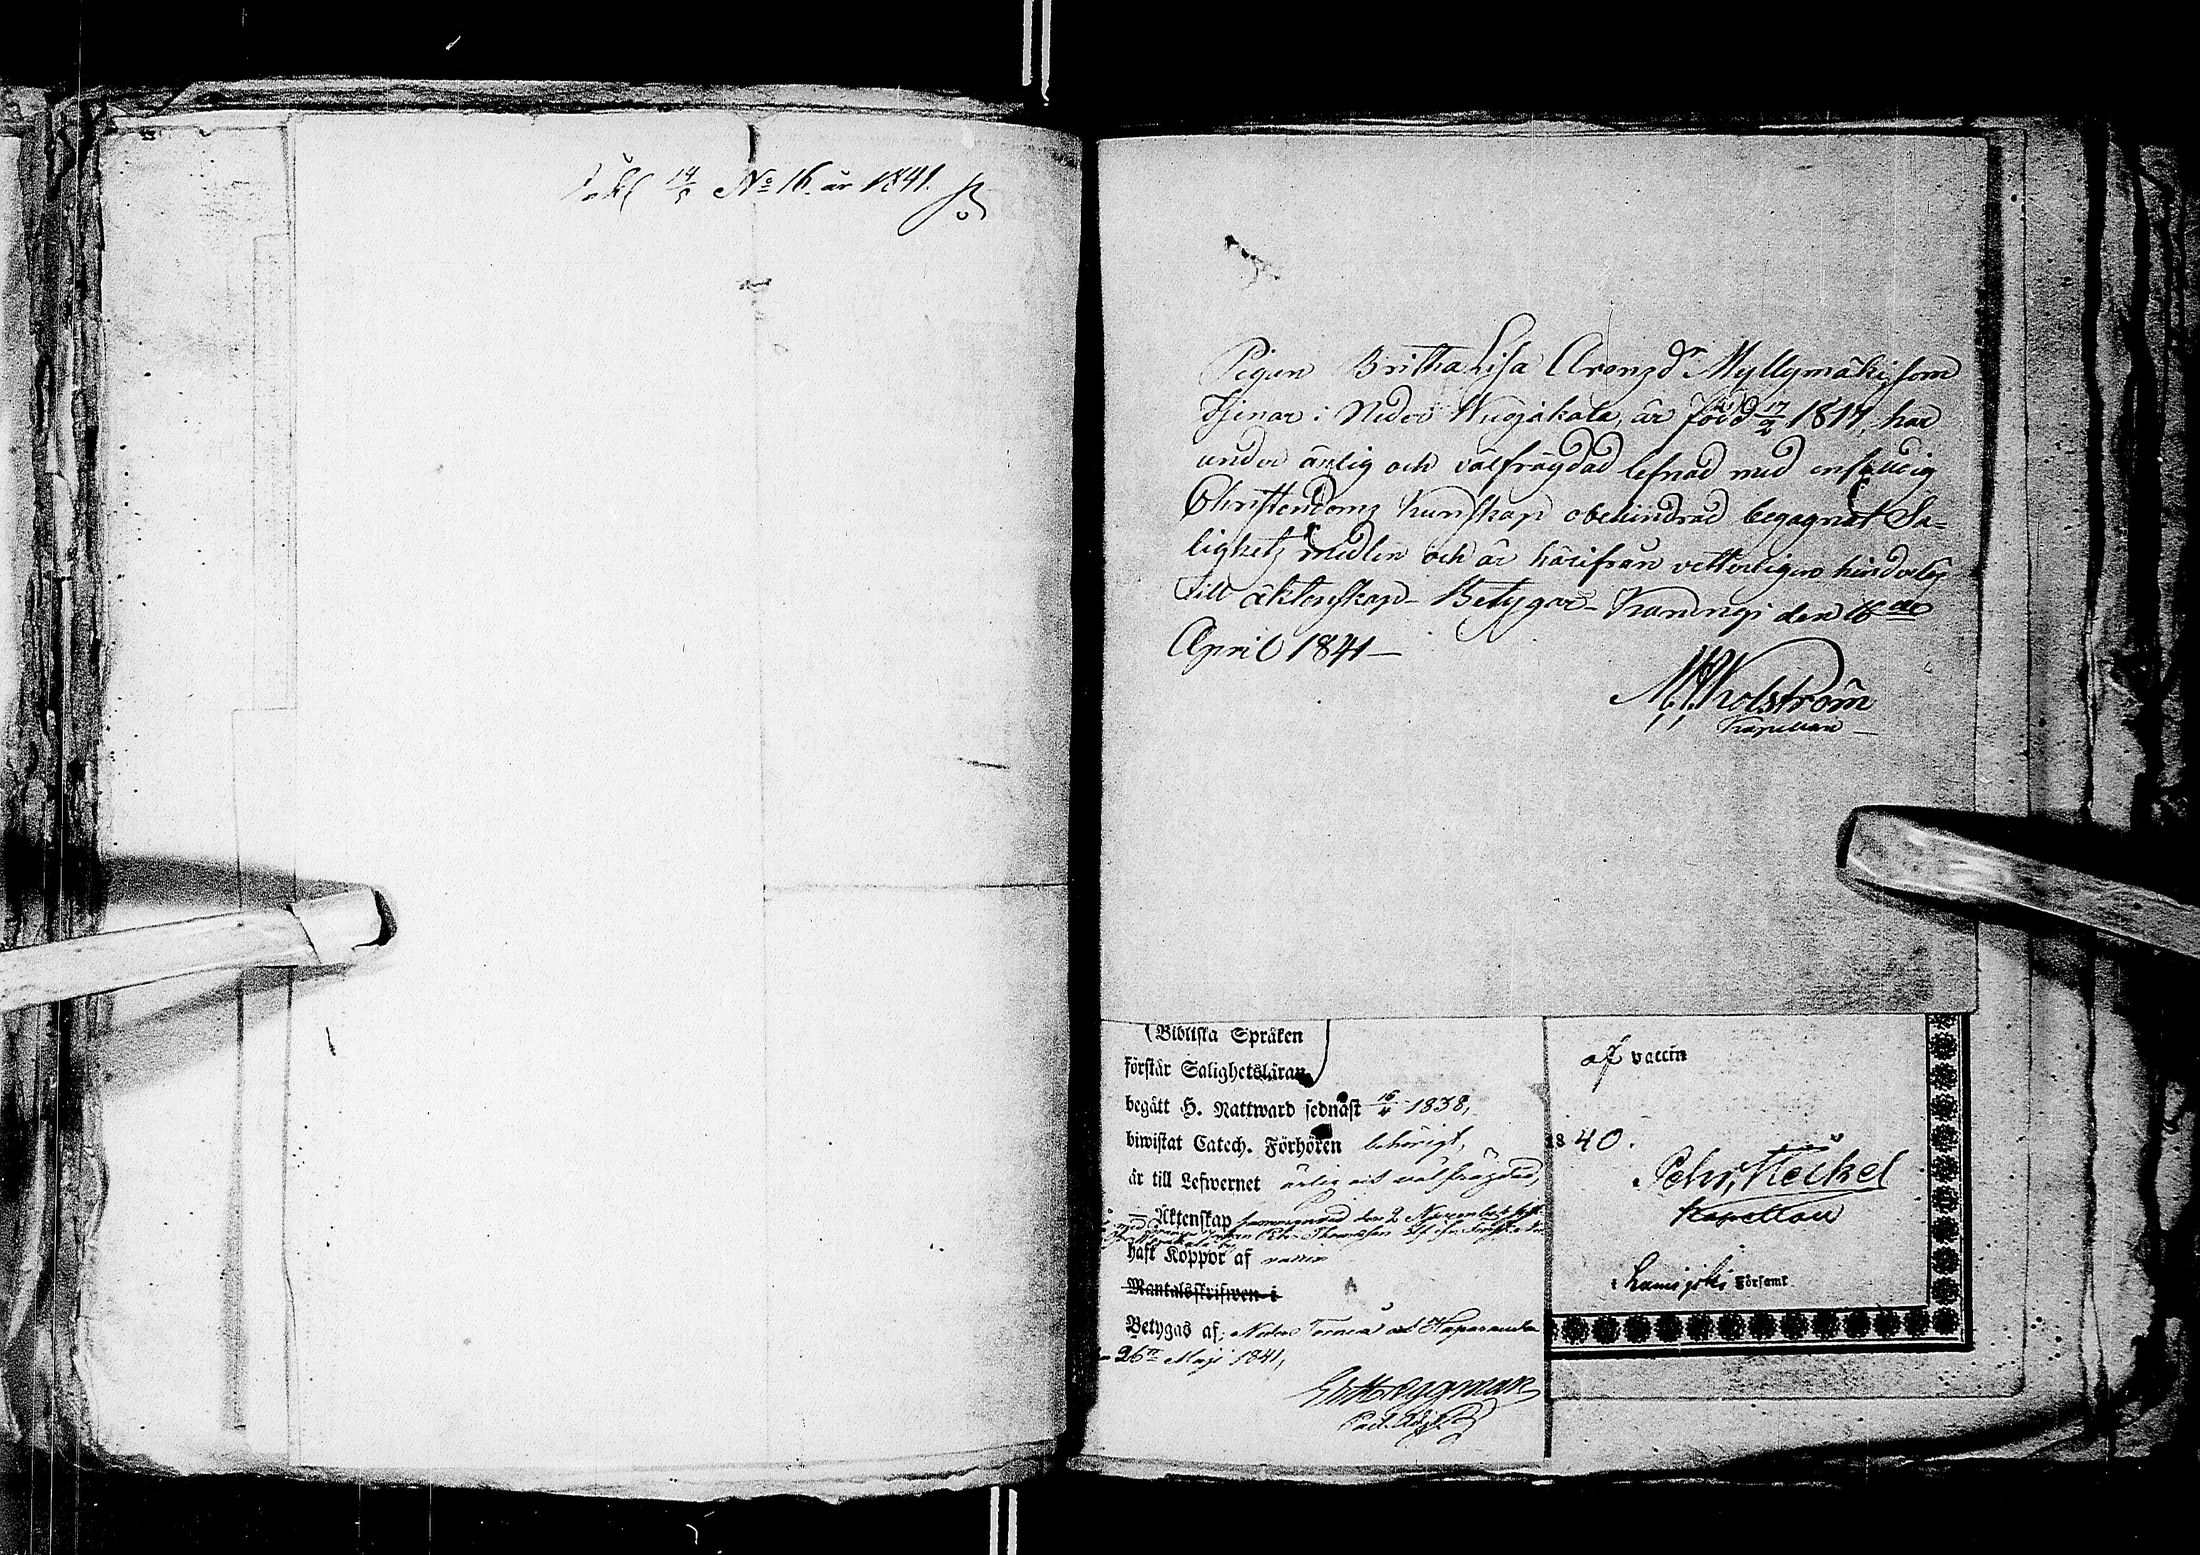 No 16 år 1841.
Pigan Britha Lisa Aronsdr Myllymäki, som
tjenar i Neder Wojakala, är född 17/2 1817, har
under ärlig och välfrägdad lefnad med enfaldig
Christendoms kunskap obehindrad begagnat Sa-
lighets medlen och är härifrån vetterligen hinderlös
till äktenskap - Betygar - Karungi den 16de
April 1841 —
Kolström
Kapellan —
(Bibliska Språken
förstår Salighetsläran
begått H. Nattward sednast 15/4 1838,
biwistat Catech. Förhören behörigt,
är till Lefwernet ärlig och välfrägdad,
— Äktenskap den 2 November
haft Koppor af vaccin
Mantalsskrifwen i
Betygas af, Neder Torneå och Haparanda
26te Maji 1841,
Past. Adj.
af vaccin
1840.
Pehr Heikel
Kapellan
i Församl.